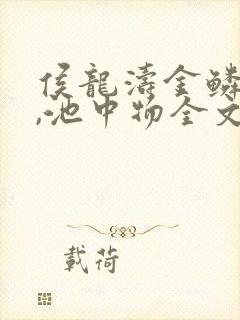 侯龍濤金鱗
,池中物全文
載荷